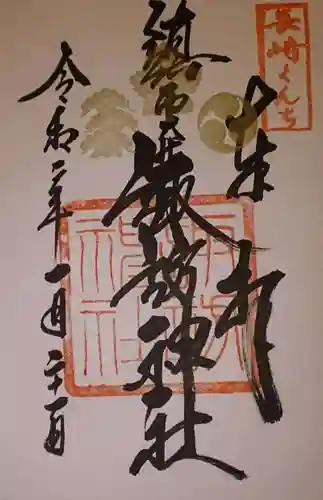 長崎くんち
奉拝
鎮西大社諏訪神社
令和二年一月二十一日